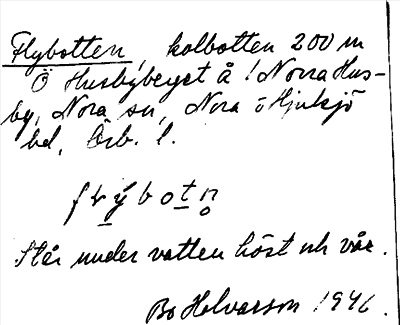 Flybotten, kolbotten 200 m
Ö Husbyberget å ! Norra Hus-
by, Nora sn, Nora o Hjulsjö
bd, Örb. l.
f b ý b o t n
Står under vatten höst och vår.
Bo Halvarson 1946.